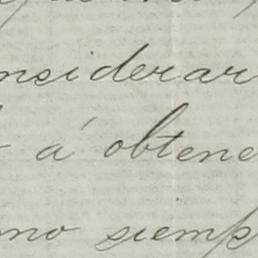 nsiderar
á obtene
mo siemp